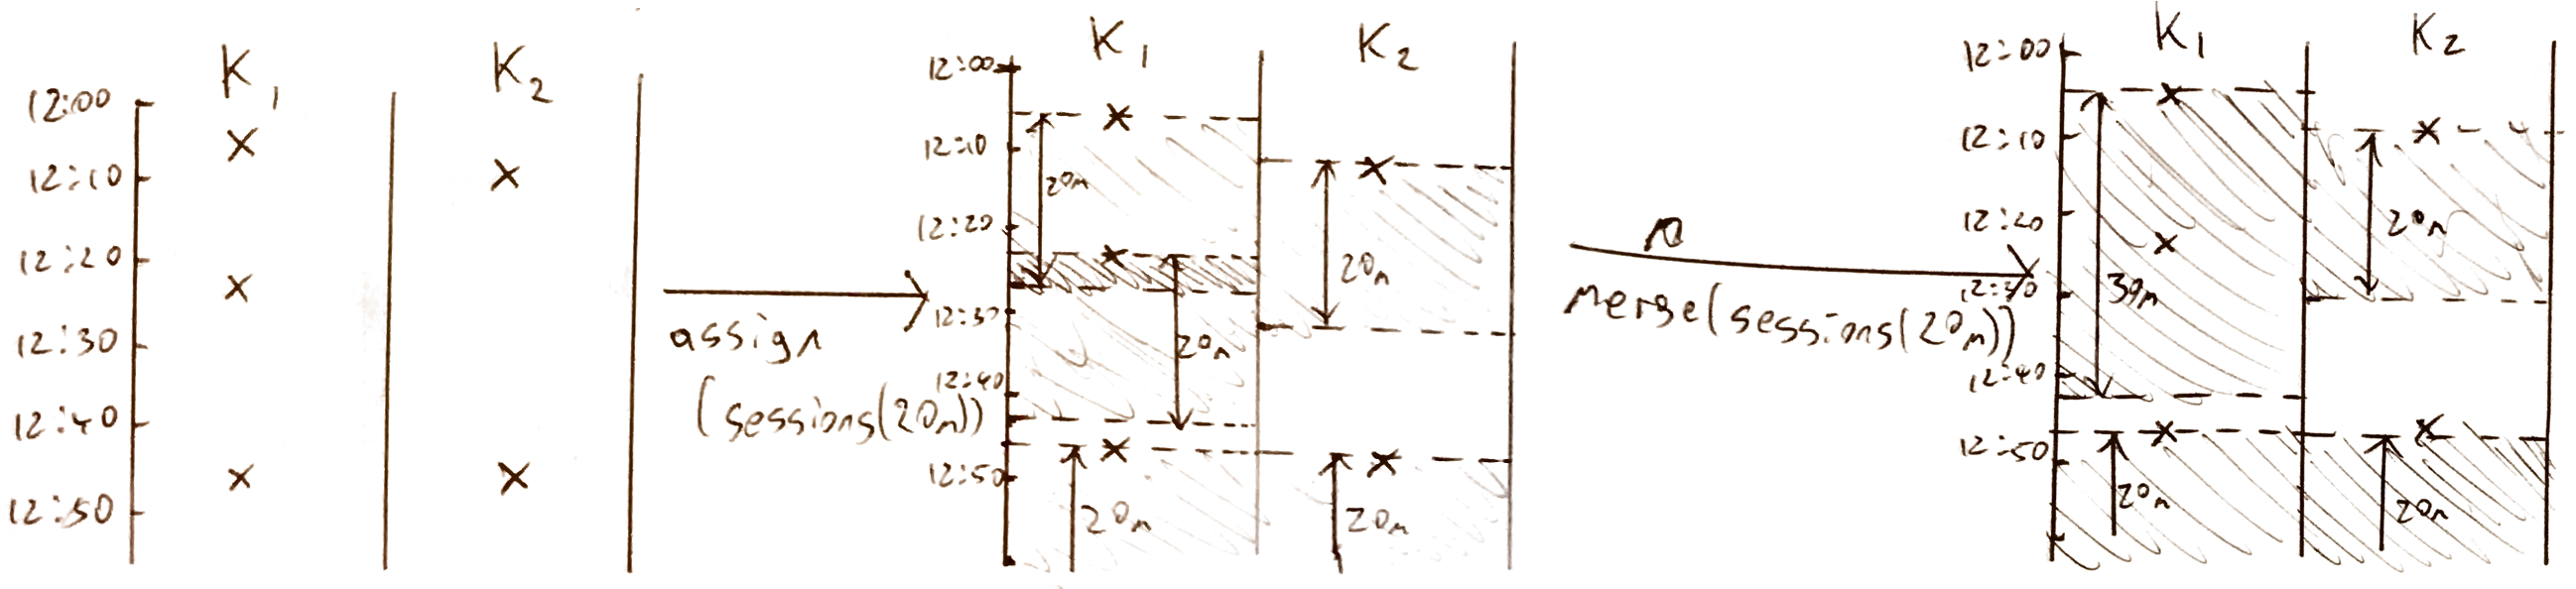 K1 K2
12:00
12:10
12:20
12:30
12:40
12:50
assign
(sessions(20m))
K1 K2
12:00
12:10
12:20
12:30
12:40
12:50
20m
20m
20m
20m
20m
merge(sessions(20m))
K1 K2
12:00
12:10
12:20
12:30
12:40
12:50
39m
20m
20m
20m